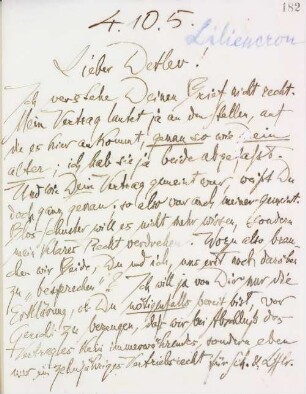 182
4.10.5.
Liliencron
Lieber Detlev!
Ich verstehe Deinen Brief nicht recht.
Mein Vertrag lautet ja an den Stellen, auf
die es hier ankommt, genau so wie Dein
alter; ich hab sie ja beide abgefaßt.
Und wie Dein Vertrag gemeint war, weißt Du
doch ganz genau; so also war auch meiner gemeint.
Blos Schuster will es nicht mehr wissen, sondern
mein klares Recht verdrehn. Wozu also brau-
chen wir Beide, Du und ich, uns erst noch darüber
zu „besprechen“? Ich will ja von Dir nur die
Erklärung, ob Du nötigenfalls bereit bist, vor
Gericht zu bezeugen, daß wir bei Abschluß des
Vertrages kein immerwährendes, sondern eben
nur ein zehnjähriges Vertriebsrecht für Sch. & Lffler.